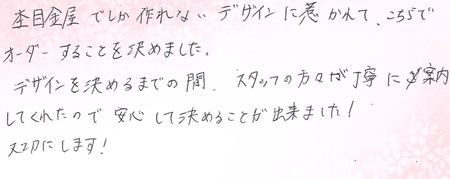 杢目金屋でしか作れないデザインに惹かれて、こちらで
オーダーすることを決めました。
デザインを決めるまでの間、スタッフの方々が丁寧に案内
してくれたので安心して決めることが出来ました!
大切にします!